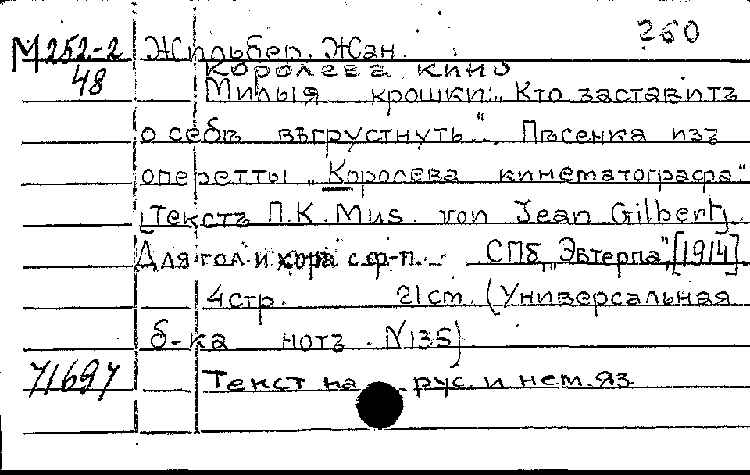 260
М 252-2 Жильбер, Жан.
48 Королева кино
Милыя крошки: „Кто заставитъ
о себѣ взгрустнуть“. Пѣсенка изъ
оперетты „Королева кинематографа“
[Текстъ П.К. Mus. von Jean Gilbert].
Для гол. и хора с ф-п. СПб, „Эвтерпа“, [1914]
4 стр. 21 cm. (Универсальная
б-ка нотъ. N135)
71697 Текст на рус. и нем. яз